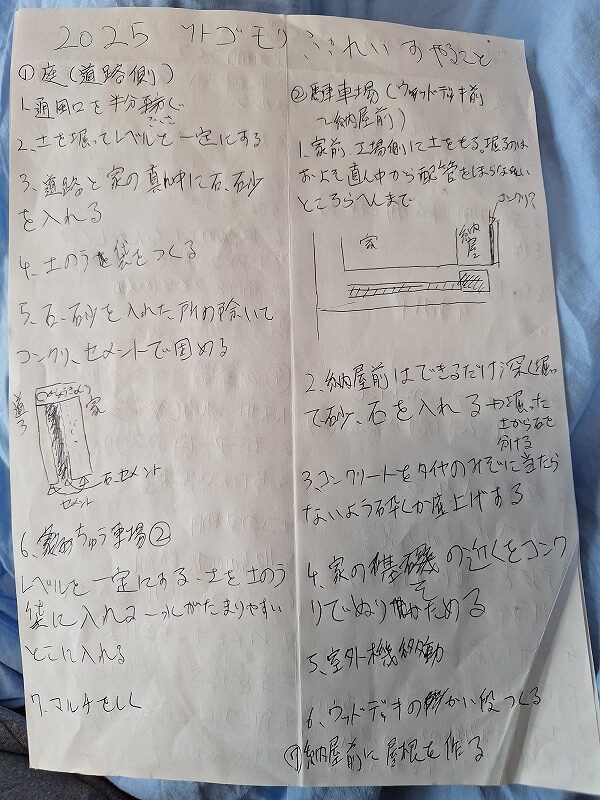 2025 ソトゴモリ これいすやること
①庭(道路側)
1.通風口を半分防ぐ
2.土を堀ってレベルを一定にする
3.道路と家の真ん中に石、石砂
を入れる
4.土のう袋をつくる
5.石、砂を入れた所の除いて
コンクリ、セメントで固める
道ろ
家
石
セメント
セメント
6、ちゅう車場②
レベルを一定にする、土を土のう
袋に入れる→水がたまりやすい
とこに入れる
7.マルチをしく
②駐車場(ウッドデッキ前
〜納屋前)
1.家前 工場側に土をもる。堀るのは
およそ真ん中から配管をほらない
ところらへんまで
コンクリ
家
納屋
2.納屋前はできるだけ深く堀っ
て砂、石を入れる→堀った
土から石を
分ける
3.コンクリートをタイヤのみぞに当たら
ないよう砕しか底上げする
4.家の基礎の近くをコンク
リでぬりかためる
5.室外機移動
6.ウッドデッキの段つくる
⑦納屋前に屋根を作る